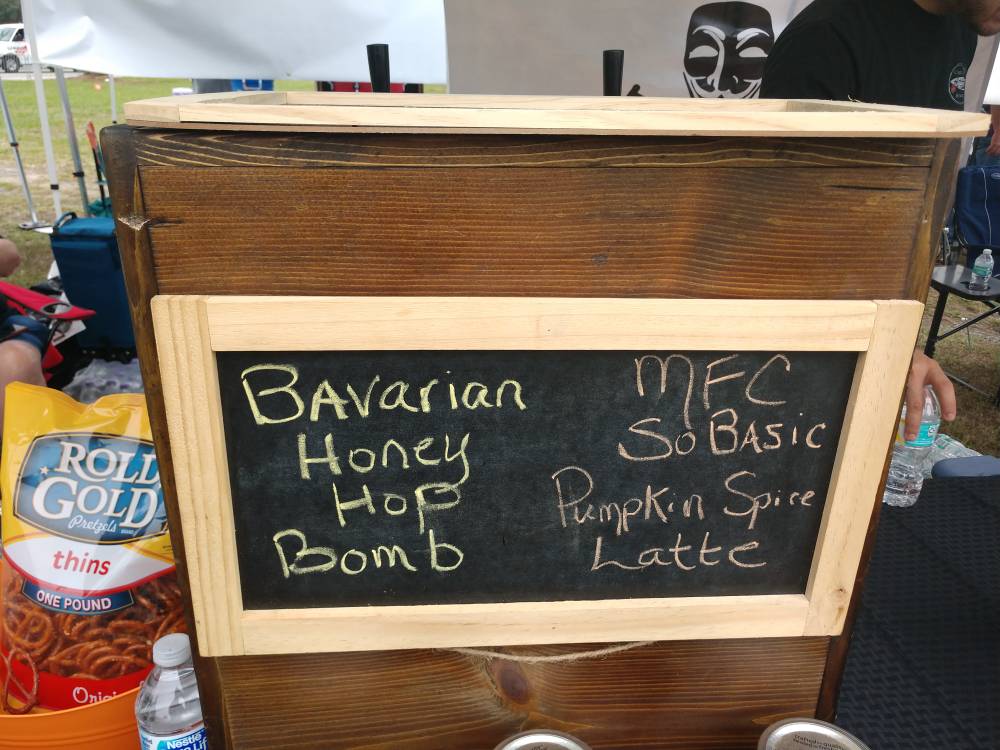 BAvarian
Honey
Hop
Bomb
MFC
So BASic
Pumpkin Spice
Latte
ROLD
GOLD
Pretzels
thins
ONE POUND
Nestle